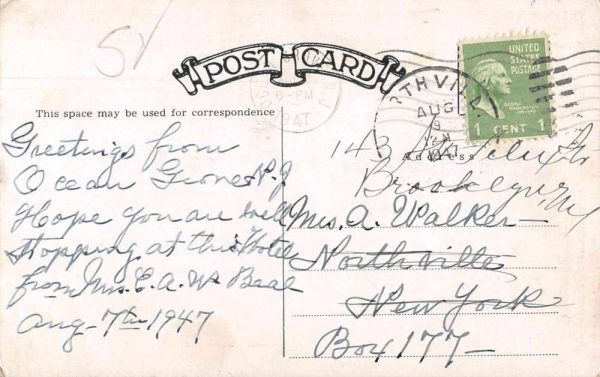 5V
POST CARD
6-PM
1947
UNITED
STATES
POSTAGE
1 CENT 1
THVILL
AUG
9
1947
This space may be used for correspondence
Address
Greetings from
Ocean Grove N.J
Hope you are well
Stopping at this Hotel
from Mrs. E. A. Beal
Aug-7th 1947
143
Brooklyn, NY
Mrs. A. Walker-
Northville
New York
Box 177-